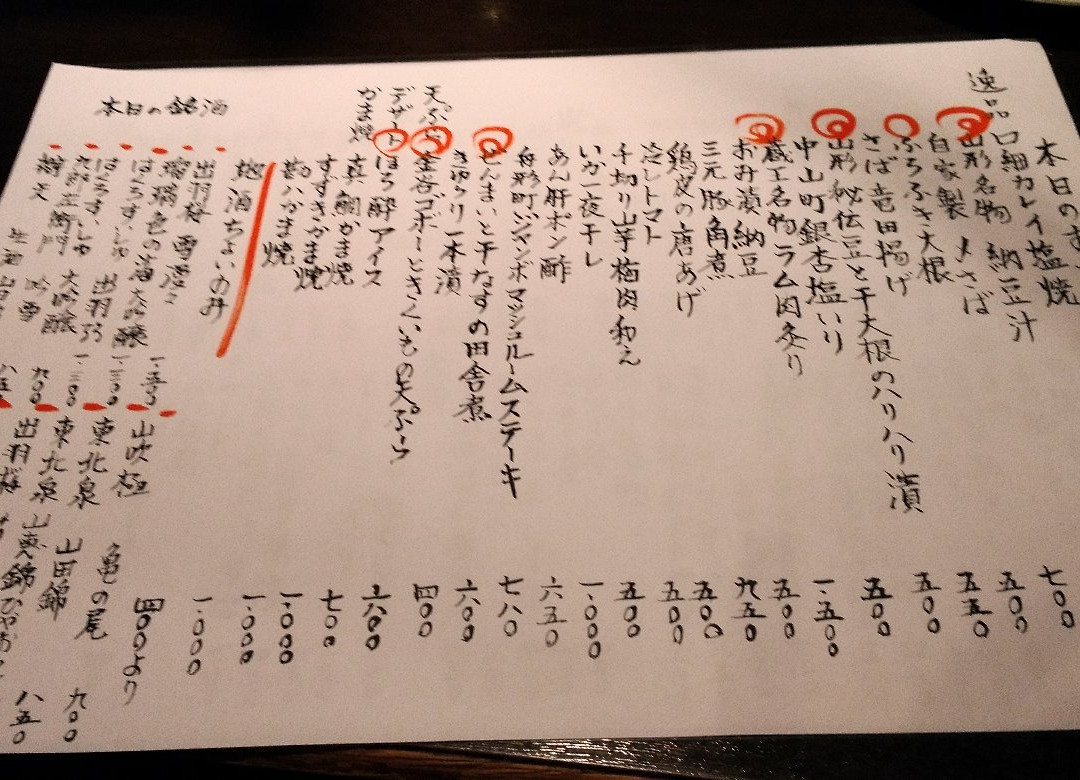 本日のお
逸品
口細カレイ塩焼
山形名物 納豆汁
自家製 〆さば
ふろふき大根
さば竜田揚げ
山形秘伝豆と干大根のハリハリ漬
中山町銀杏塩いり
蔵王名物ラム肉炙り
おみ漬納豆
三元豚角煮
鶏皮の唐あげ
冷しトマト
千切り山芋梅肉和え
いか一夜干し
あん肝ポン酢
舟形町ジャンボマッシュルームステーキ
ぜんまいと干なすの田舎煮
きゅうり一本漬
天ぷら
ゴボーときくいもの天ぷら
デザート
はち酔アイス
かま焼
真鯛かま焼
すずきかま焼
勘八かま焼
七〇〇
五〇〇
五五〇
五〇〇
五〇〇
一、五〇〇
五〇〇
九五〇
五〇〇
五〇〇
五〇〇
一、〇〇〇
六五〇
七八〇
六〇〇
四〇〇
六〇〇
七〇〇
一、〇〇〇
一、〇〇〇
一、〇〇〇
地酒ちょい呑み
四〇〇より
本日の銘酒
出羽桜 雪漫々
瑠璃色の海 大吟醸 一、五〇〇
はらろすいしゅ 出羽 一、三〇〇
九郎左衛門 大吟醸 一、二〇〇
吟雪 九〇〇
生酒
山吹極
東北泉 亀の尾 九〇〇
東北泉 山田錦 八五〇
出羽桜
山恵錦ひやおろし